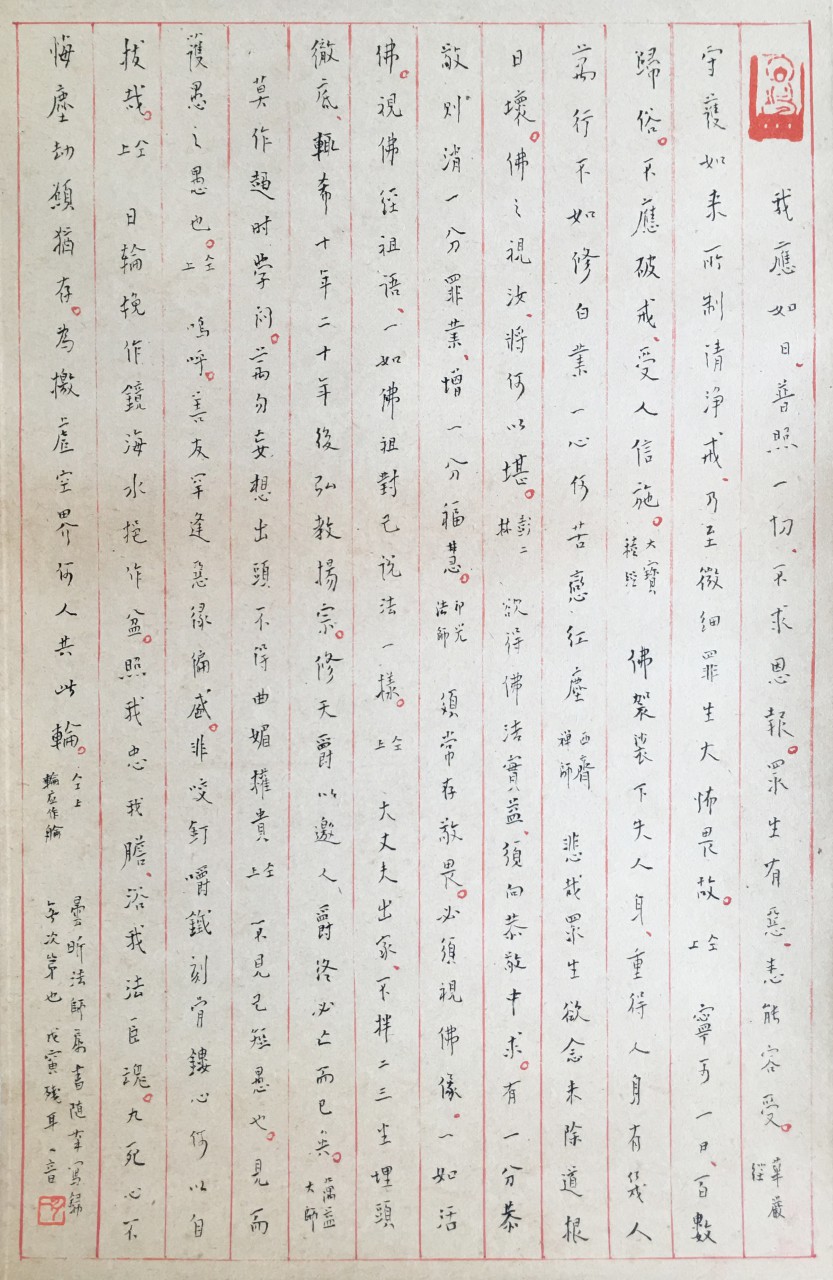 我應如日、普照一切、不求恩報。眾生有惡、悉能容受。華嚴經
守護如來所制清淨戒、乃至微細罪生大怖畏故。仝上 寧可一日、百數
歸俗。不應破戒、受人信施。大寶積經 佛袈裟下失人身、重得人身有幾人
萬行不如修白業一心何苦戀紅塵 西齋禪師 悲哉眾生欲念未除道根
日壞。佛之視汝、將何以堪。彭二林 欲得佛法實益、須向恭敬中求。有一分恭
敬則消一分罪業、增一分福慧。印光法師 須常存敬畏。必須視佛像。一如活
佛。視佛經祖語、一如佛祖對己說法一樣。仝上 大丈夫出家、不拌二三坐埋頭
徹底、輒希十年二十年後弘教揚宗。修天爵以邀人、爵終必亡而已矣。蕅益大師
莫作趨時學问。尚勿妄想出頭不得曲媚權貴 仝上 不見己無愚也。見而
護愚之愚也。仝上 嗚呼。善友罕逢惡缘偏盛。非咬釘嚼鐵刻骨鏤心何以自
拔哉。仝上 日輪挽作鏡海水挹作盆。照我忠我膽、浴我法臣魂。九死心不
悔塵劫願猶存。為檄虛空界何人共此輪。仝上 輪应作艙
曇昕法師属書随筆寫錄
無次第也 戊寅殘年 一音